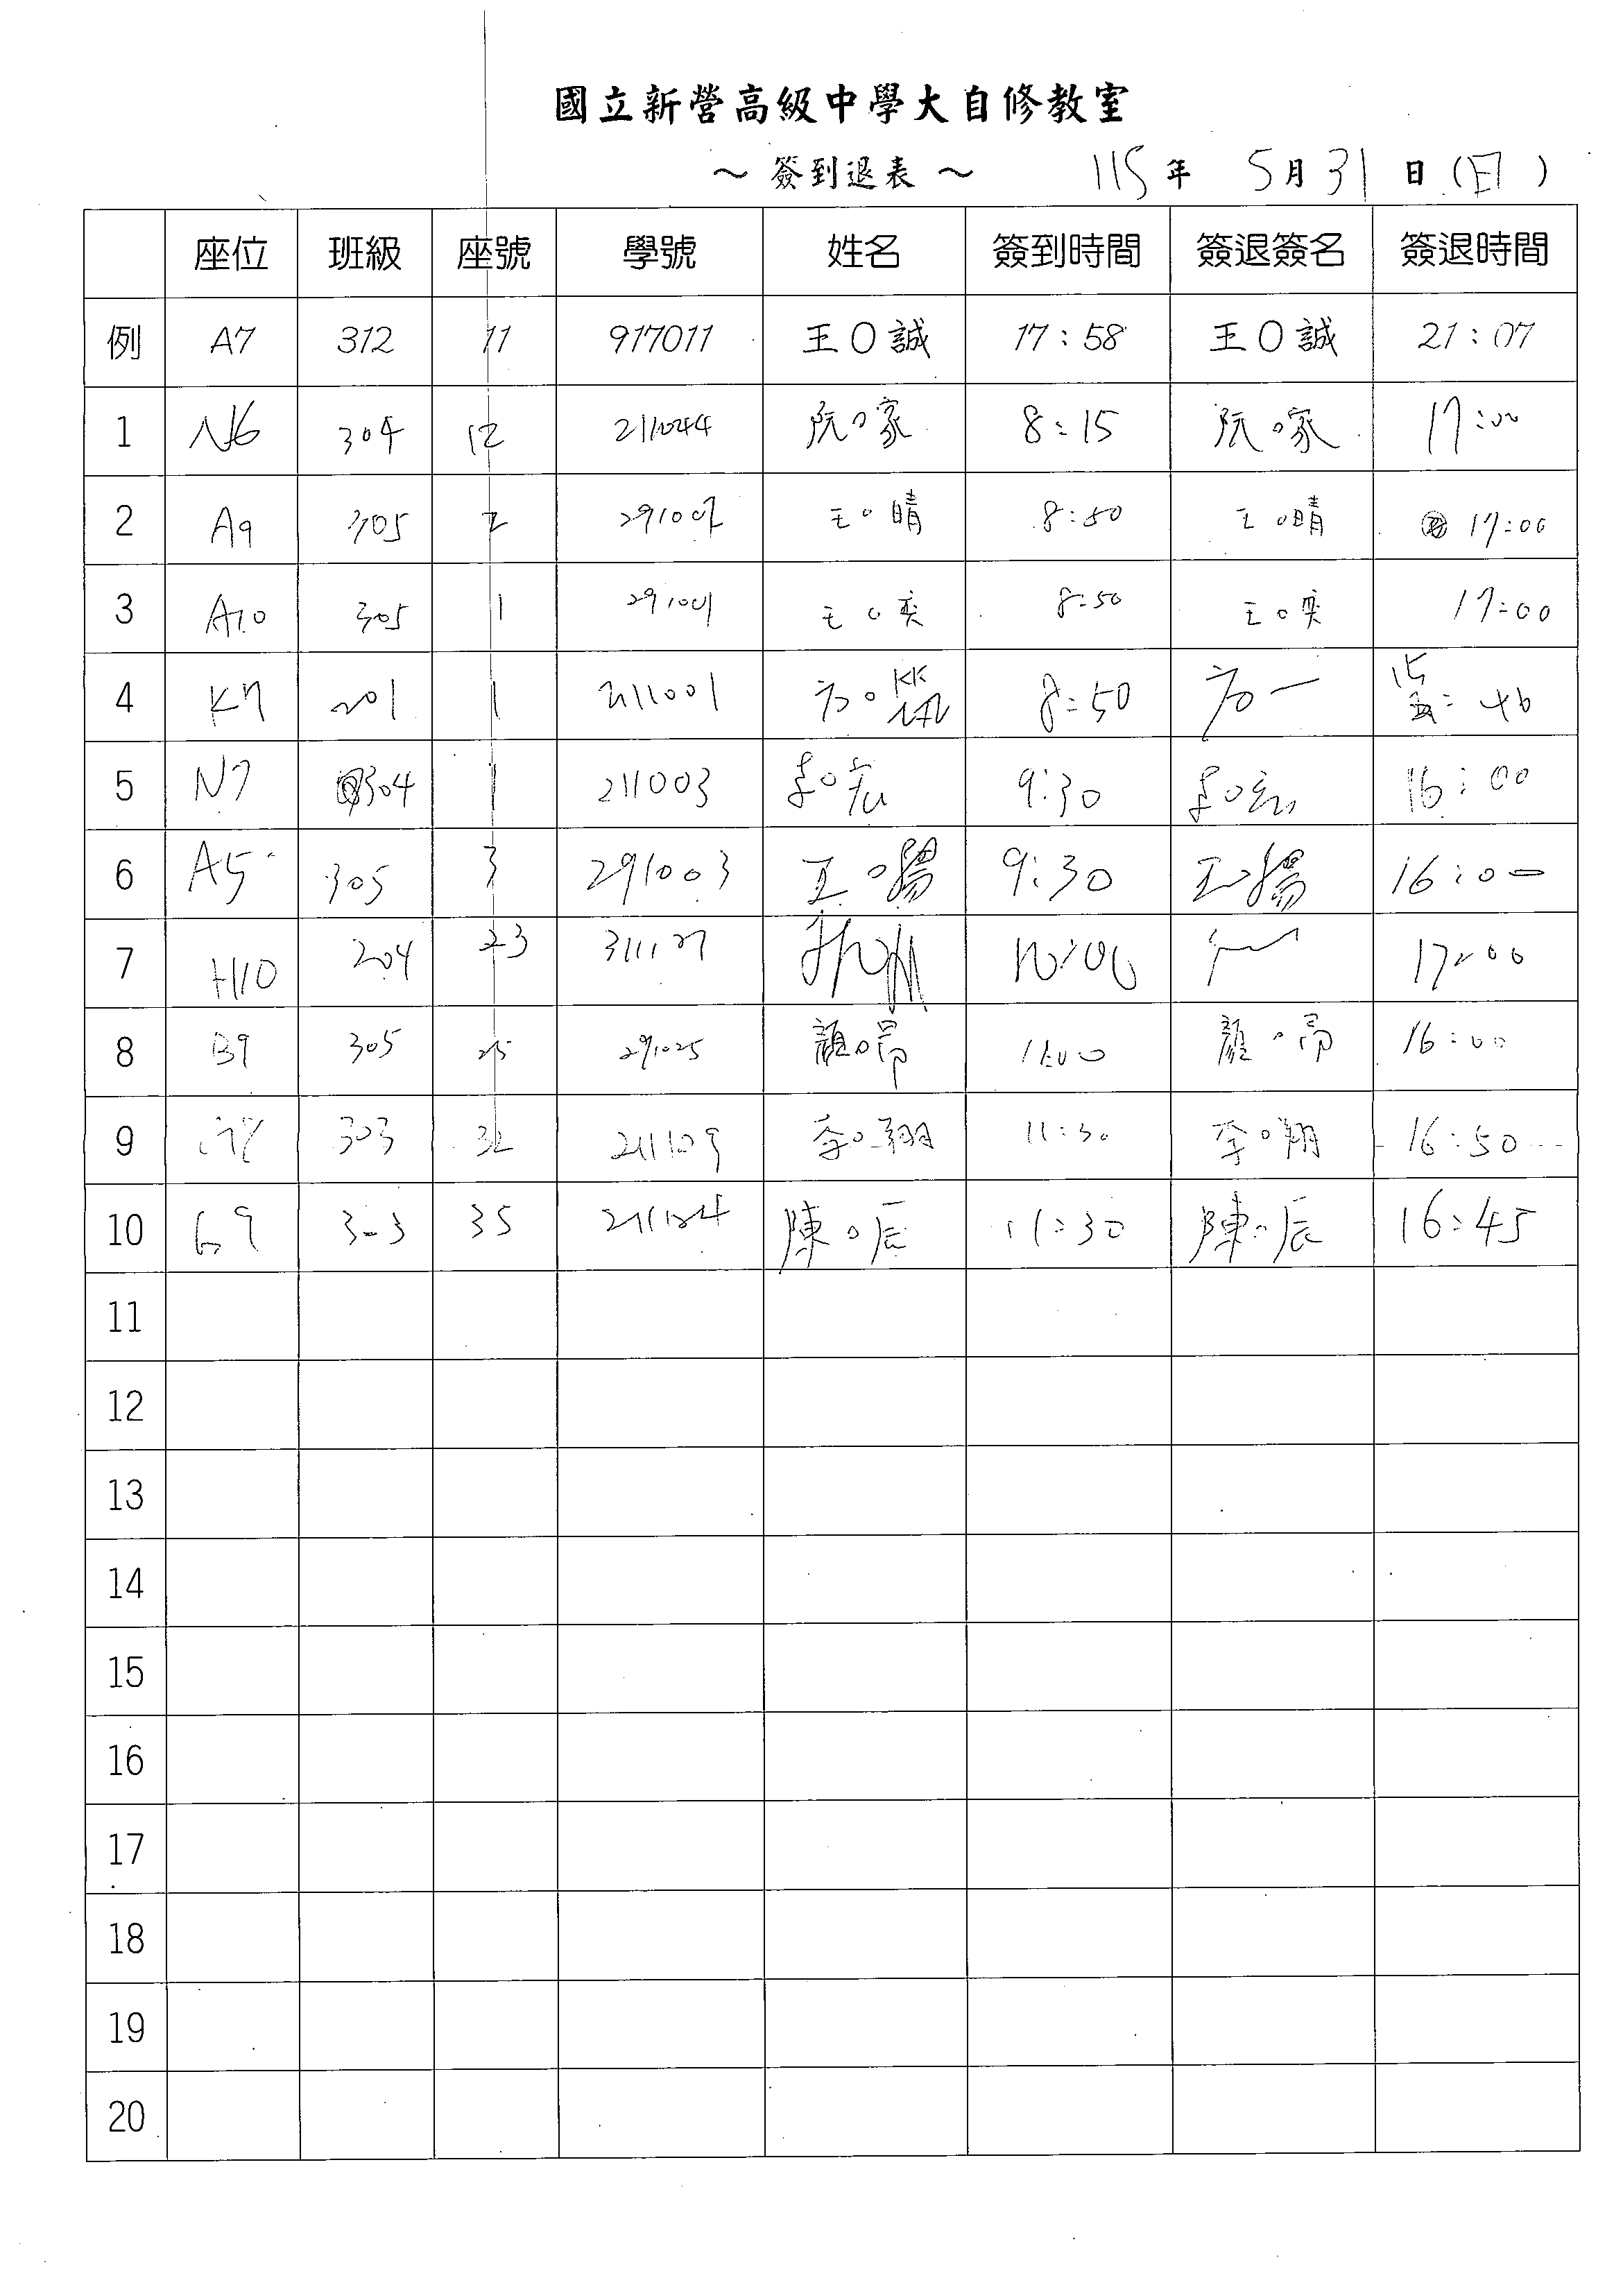 國立新營高級中學大自修教室
～ 簽到退表 ～ 115 年 5 月 31 日 (日)
座位 班級 座號 學號 姓名 簽到時間 簽退簽名 簽退時間
例 A7 312 11 917011 王O誠 17:58 王O誠 21:07
1 N6 304 12 211044 阮O家 8:15 阮O家 17:00
2 A9 305 2 291002 王O晴 8:50 王O晴 17:00
3 A10 305 1 291001 王O奕 8:50 王O奕 17:00
4 K7 201 1 211001 方O 8:50 方 15:46
5 N7 304 1 211003 李O宏 9:30 李O宏 16:00
6 A5 305 3 291003 王O揚 9:30 王O揚 16:00
7 H10 204 23 311127 10:00 17:00
8 B9 305 25 291025 顏O昂 11:00 顏O昂 16:00
9 303 32 211109 李O翔 11:30 李O翔 16:50
10 G9 303 35 211124 陳O辰 11:30 陳O辰 16:45
11
12
13
14
15
16
17
18
19
20